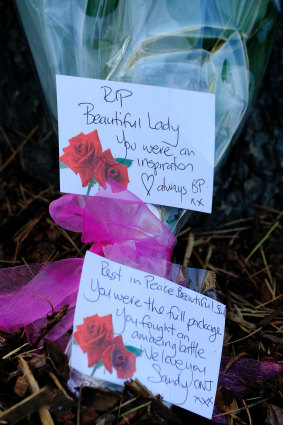 RIP
Beautiful Lady
You were an
inspiration
♡ always BP
xx
Rest in Peace Beautiful
You were the full package
You fought an
amazing battle
We love you
Sandy
xxx